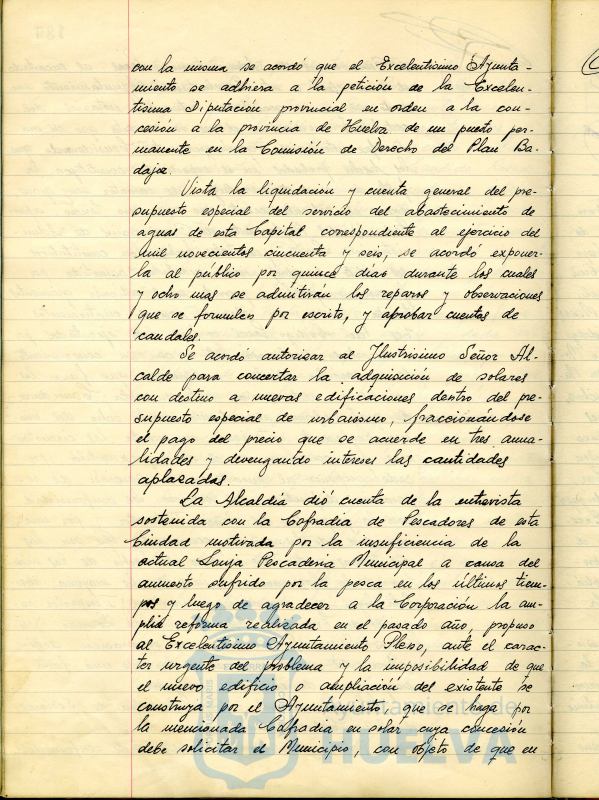 con la misma se acordó que el Excelentísimo Ayunta-
miento se adhiera a la petición de la Excelen-
tísima Diputación provincial en orden a la con-
cesión a la provincia de Huelva de un puesto per-
manente en la Comisión de Derecho del Plan Ba-
dajoz.
Vista la liquidación y cuenta general del pre-
supuesto especial del servicio del abastecimiento de
aguas de esta Capital correspondiente al ejercicio del
mil novecientos cincuenta y seis, se acordó exponer-
la al público por quince días durante los cuales
y ocho mas se admitirán los reparos y observaciones
que se formulen por escrito, y aprobar cuentas de
caudales.
Se acordó autorizar al Ilustrísimo Señor Al-
calde para concertar la adquisición de solares
con destino a nuevas edificaciones dentro del pre-
supuesto especial de urbanismo, fraccionándose
el pago del precio que se acuerde en tres anua-
lidades y devengando intereses las cantidades
aplazadas.
La Alcaldía dió cuenta de la entrevista
sostenida con la Cofradía de Pescadores de esta
Ciudad motivada por la insuficiencia de la
actual Lonja Pescadería Municipal a causa del
aumento sufrido por la pesca en los últimos tiem-
pos y luego de agradecer a la Corporación la am-
plia reforma realizada en el pasado año, propuso
al Excelentísimo Ayuntamiento Pleno, ante el carac-
ter urgente del problema y la imposibilidad de que
el nuevo edificio o ampliación del existente se
construya por el Ayuntamiento, que se haga por
la mencionada Cofradía en solar cuya concesión
debe solicitar el Municipio, con objeto de que en
Ayuntamiento de
HUELVA